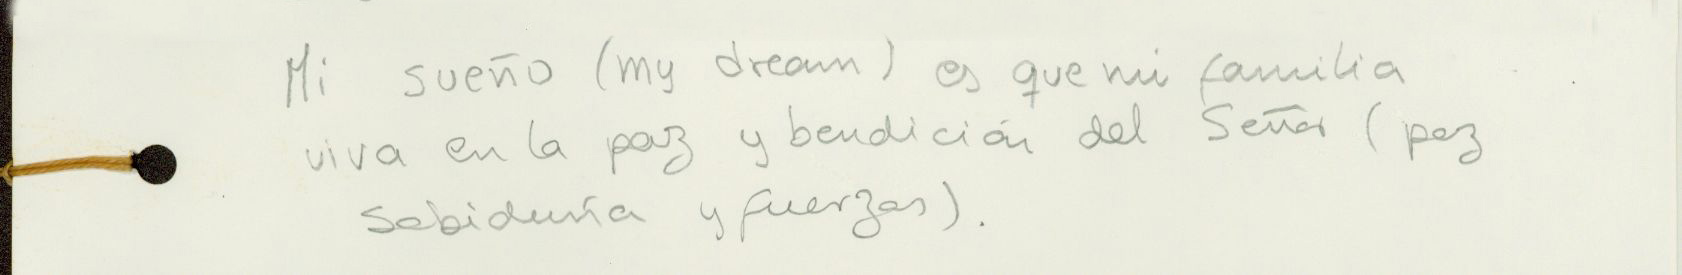 Mi sueño (my dream) es que mi familia
viva en la paz y bendición del Señor (paz
Sabiduría y fuerzas).